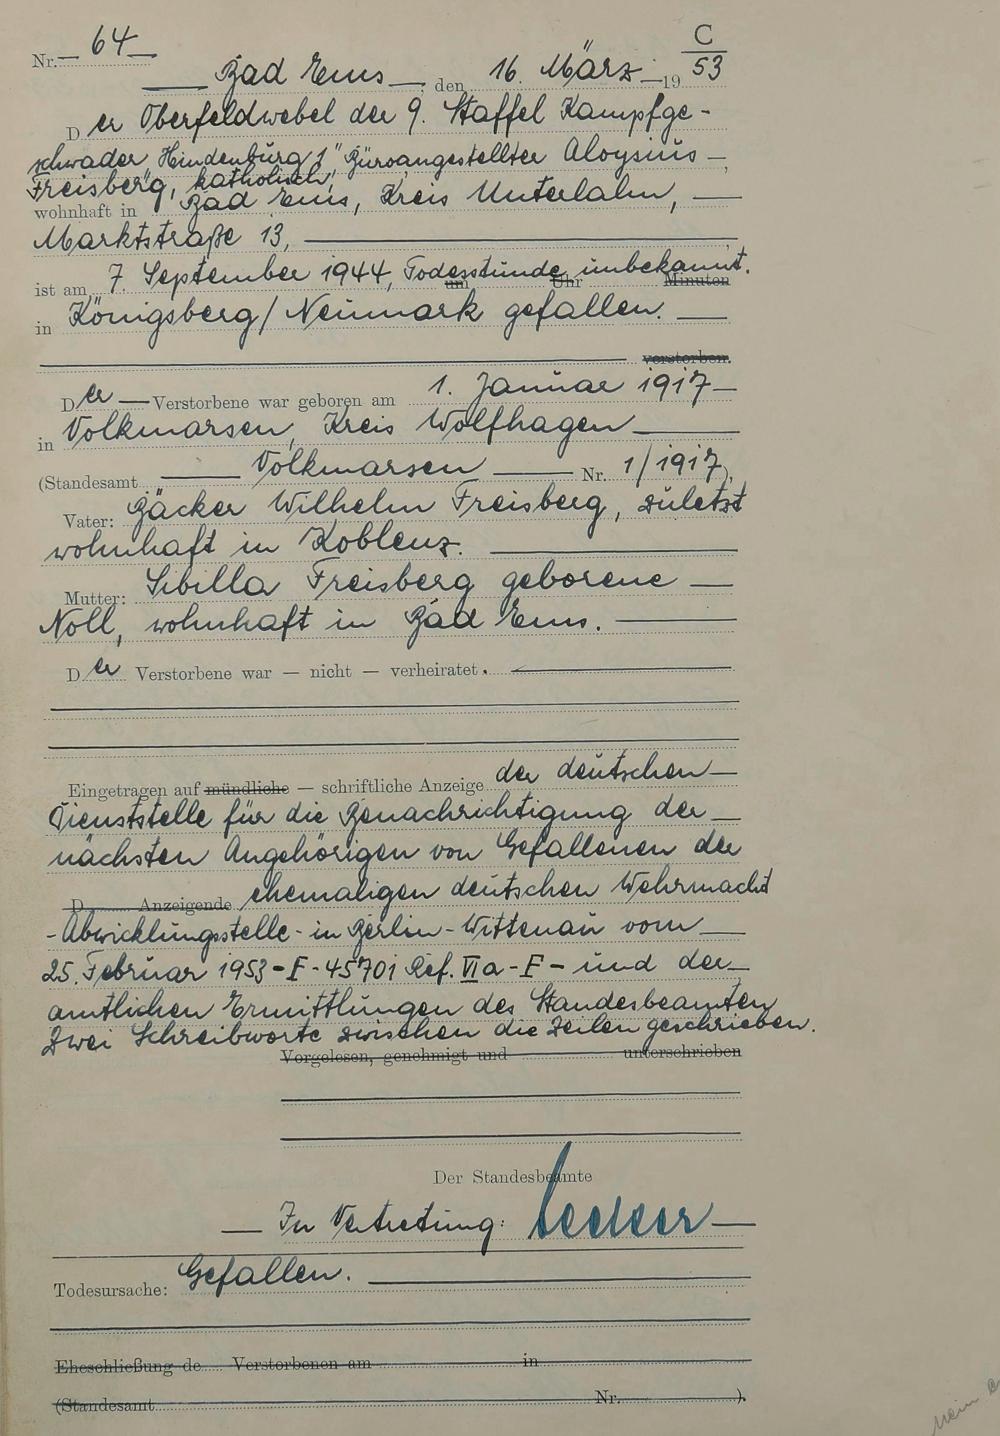 C
Nr. 64
Bad Ems, den 16. März 19 53
Der Oberfeldwebel der 9. Staffel Kampfge-
schwader „Hindenburg 1" Büroangestellter Aloysius
Freisberg, katholisch,
wohnhaft in Bad Ems, Kreis Unterlahn,
Marktstraße 13,
ist am 7. September 1944, Todesstunde unbekannt.
um Uhr Minuten
in Königsberg/Neumark gefallen.
verstorben.
Der Verstorbene war geboren am 1. Januar 1917
in Volkmarsen, Kreis Wolfhagen
(Standesamt Volkmarsen Nr. 1/1917),
Vater: Bäcker Wilhelm Freisberg, zuletzt
wohnhaft in Koblenz.
Mutter: Sibilla Freisberg geborene
Noll, wohnhaft in Bad Ems.
Der Verstorbene war — nicht — verheiratet.
Eingetragen auf mündliche — schriftliche Anzeige der deutschen
Dienststelle für die Benachrichtigung der
nächsten Angehörigen von Gefallenen der
D Anzeigende ehemaligen deutschen Wehrmacht
-Abwicklungsstelle- in Berlin-Wittenau vom
25. Februar 1953 - F - 45701 Ref. VI a - F - und der
amtlichen Ermittlungen des Standesbeamten
Zwei Schreibworte zwischen die Zeilen geschrieben.
Vorgelesen, genehmigt und unterschrieben
Der Standesbeamte
In Vertretung:
Todesursache: Gefallen.
Eheschließung de Verstorbenen am in
(Standesamt Nr. ).